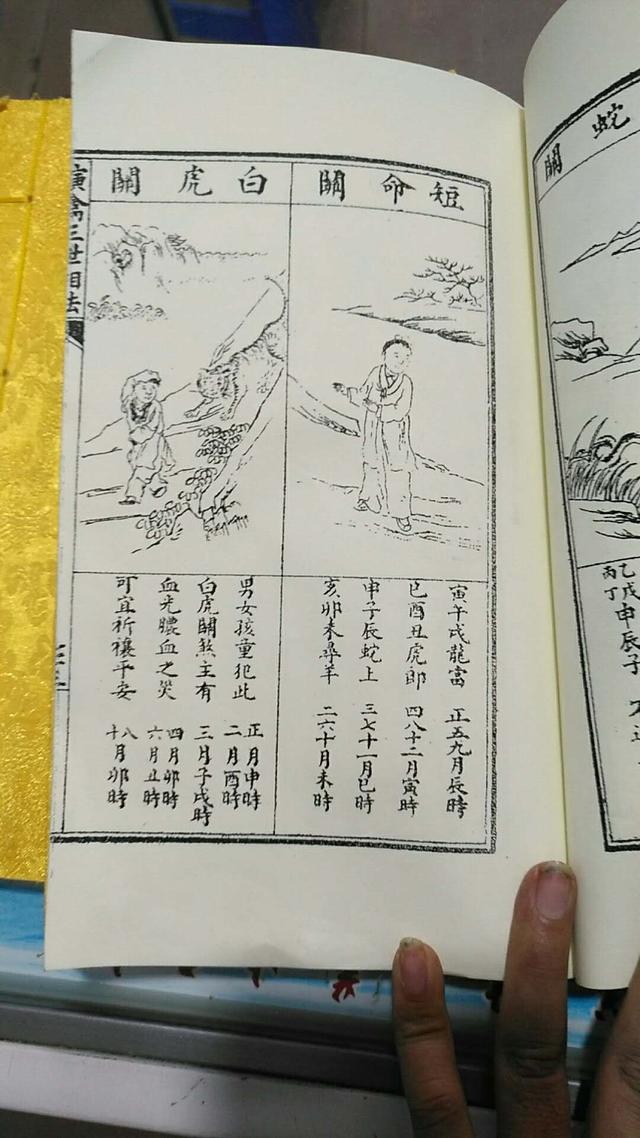 蛇關
短命關
寅午戌龍當 正五九月辰時
巳酉丑虎郎 四八十二月寅時
申子辰蛇上 三七十一月巳時
亥卯未尋羊 二六十月未時
白虎關
男女孩童犯此 正月申時 二月酉時
白虎關煞主有 三月子戌時
血光膿血之災 四月卯時 六月丑時
可宜祈禳平安 八十月卯時
演禽三世相法